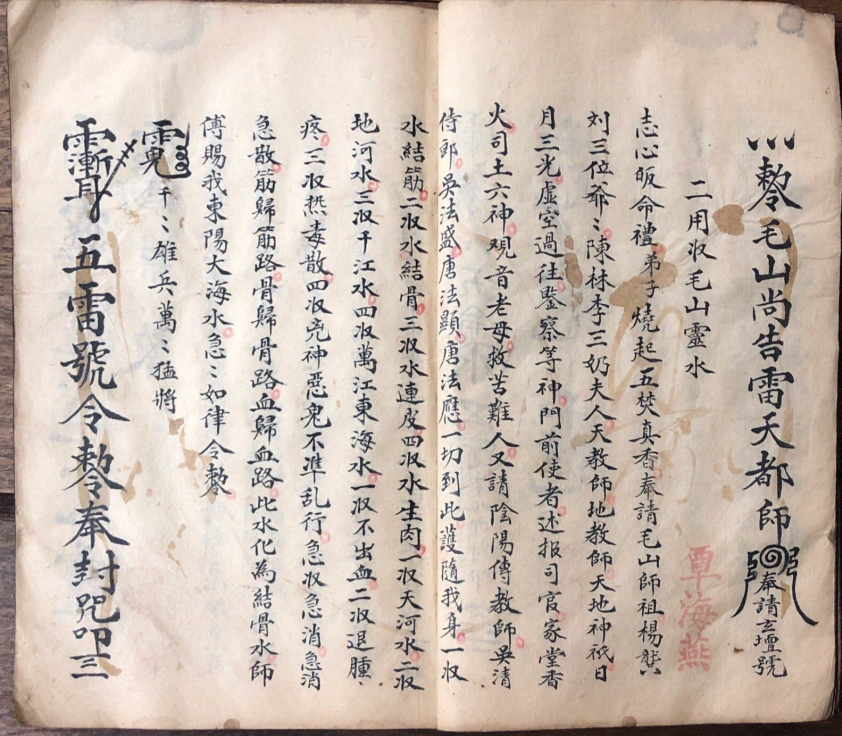 敕令毛山尚告雷天都師
奉請玄壇號
二用収毛山靈水
覃海燕
志心皈命禮弟子燒起五焚真香奉請毛山師祖楊龔
刘三位爺〻陳林李三奶夫人天教師地教師天地神祇日
月三光虛空過往鑒察等神門前使者述报司官家堂香
火司土六神观音老母救苦難人又請陰陽傳教師吳清
侍郎吳法盛唐法顯唐法應一切到此護隨我身一収
水結筋二収水結骨三収水連皮四収水生肉一収天河水二収
地河水三収千江水四収萬江東海水一収不出血二収退腫
疼三収热毒散四収凶神惡鬼不準乱行急収急消急消
急散筋歸筋路骨歸骨路血歸血路此水化為結骨水師
傅賜我東陽大海水急〻如律令敕
千〻雄兵萬〻猛將
五雷號令敕令奉封咒叩三